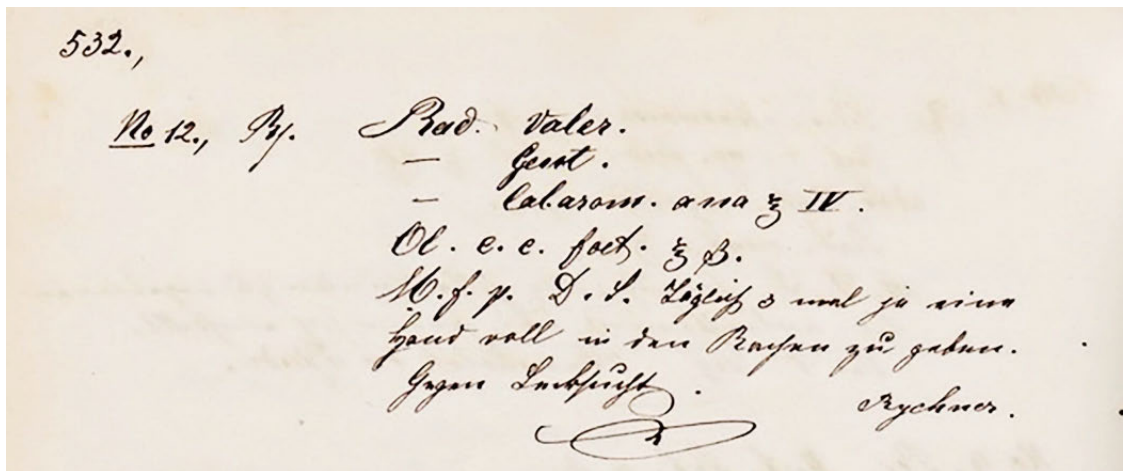 532.,
No 12., Rf. Rad. Valer.
— Gent.
— Cal. arom. ana ℥ IV.
Ol. c. c. foet. ℥ β.
M. f. p. D. S. Täglich 3 mal je eine
Hand voll in den Rachen zu geben.
Gegen Lecksucht.
Rychner.